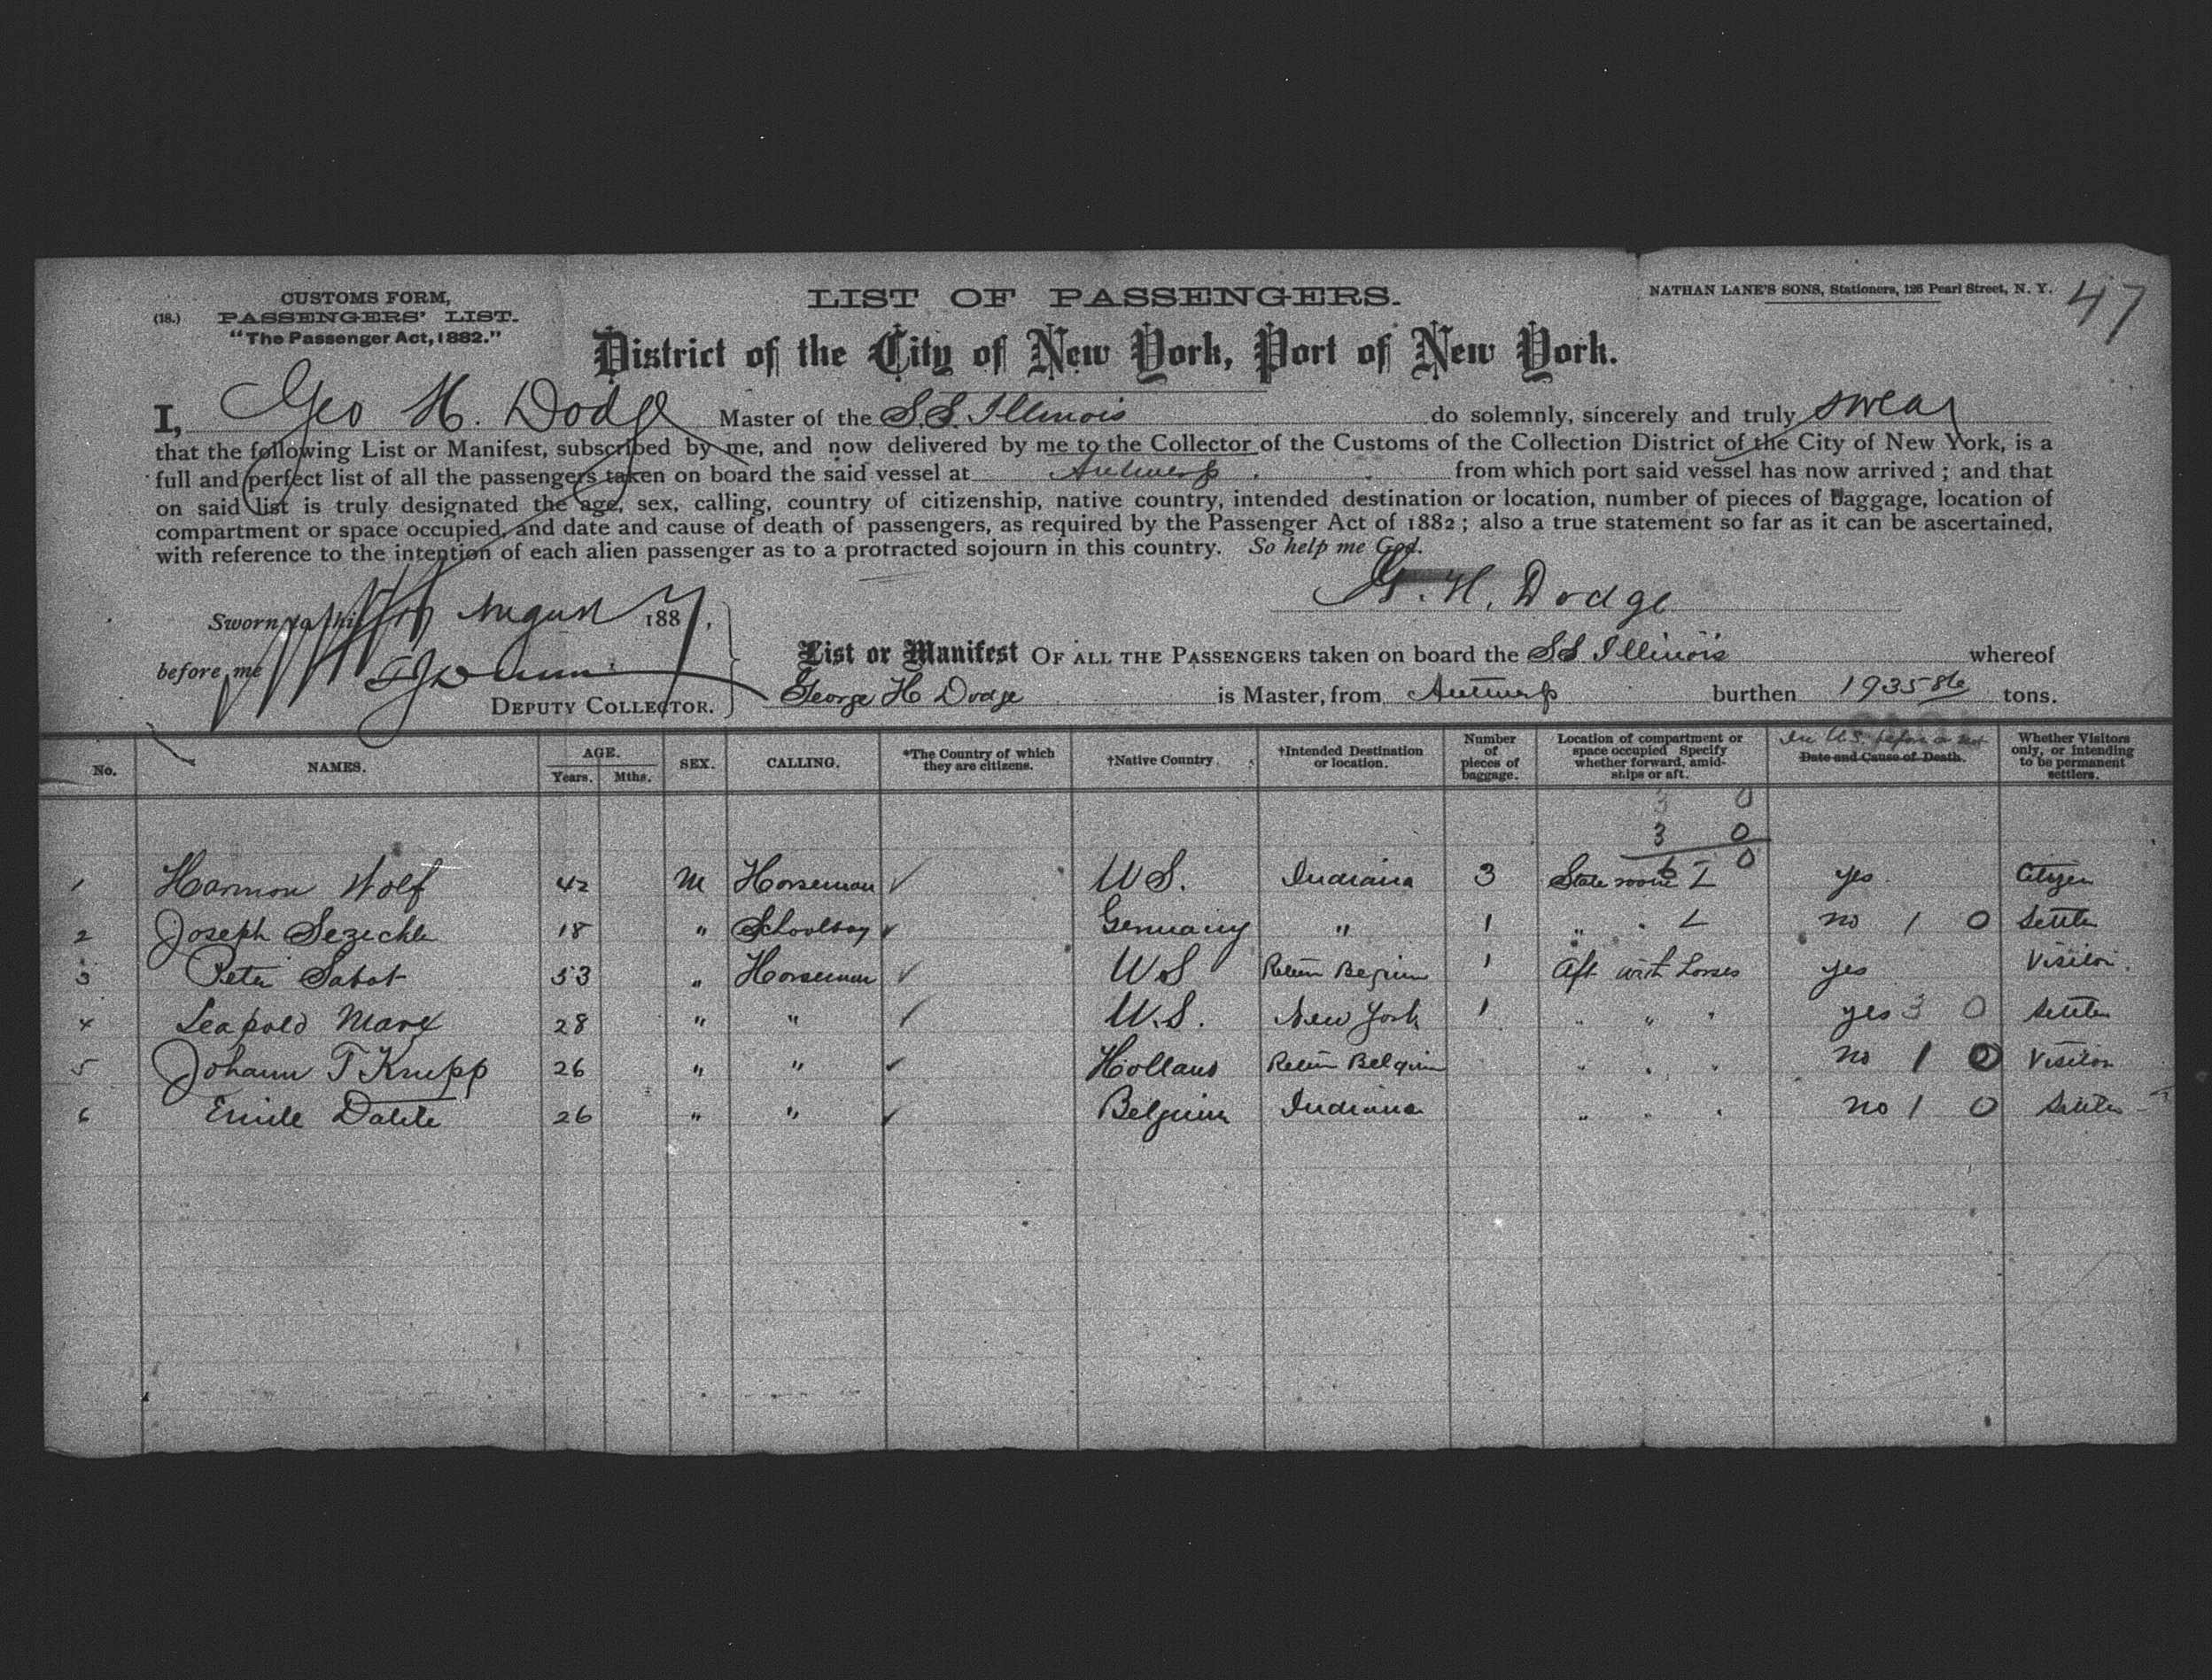 CUSTOMS FORM,
(18.) PASSENGERS' LIST.
"The Passenger Act, 1882."
LIST OF PASSENGERS.
NATHAN LANE'S SONS, Stationers, 126 Pearl Street, N. Y. 47
District of the City of New York, Port of New York.
I, Geo H. Dodge Master of the S.S. Illinois do solemnly, sincerely and truly swear
that the following List or Manifest, subscribed by me, and now delivered by me to the Collector of the Customs of the Collection District of the City of New York, is a
full and perfect list of all the passengers taken on board the said vessel at Antwerp from which port said vessel has now arrived; and that
on said list is truly designated the age, sex, calling, country of citizenship, native country, intended destination or location, number of pieces of baggage, location of
compartment or space occupied, and date and cause of death of passengers, as required by the Passenger Act of 1882; also a true statement so far as it can be ascertained,
with reference to the intention of each alien passenger as to a protracted sojourn in this country. So help me God.
G. H. Dodge
Sworn to this August 1887,
before me
DEPUTY COLLECTOR.
List or Manifest OF ALL THE PASSENGERS taken on board the SS Illinois whereof
George H Dodge is Master, from Antwerp burthen 1935 86 tons.
No. NAMES. AGE. Years. Mths. SEX. CALLING. *The Country of which they are citizens. †Native Country. †Intended Destination or location. Number of pieces of baggage. Location of compartment or space occupied Specify whether forward, amidships or aft. In U.S. before or not Date and Cause of Death. Whether Visitors only, or intending to be permanent settlers.
3 0
3 0
6 0
1 Harmon Wolf 42 M Horseman ✓ U S. Indiana 3 State room 1 yes Citizen
2 Joseph 18 " Schoolboy ✓ Germany " 1 " " no 1 0 Settler
3 Peter Sabot 53 " Horseman ✓ U S Return Belgium 1 Aft with horses yes Visitor.
4 Leapold Marx 28 " " ✓ U.S. New York 1 " " " yes 3 0 Settler
5 Johann T Krupp 26 " " ✓ Holland Return Belgium " " " no 1 0 Visitor
6 Emile 26 " " ✓ Belgium Indiana " " " no 1 0 Settler